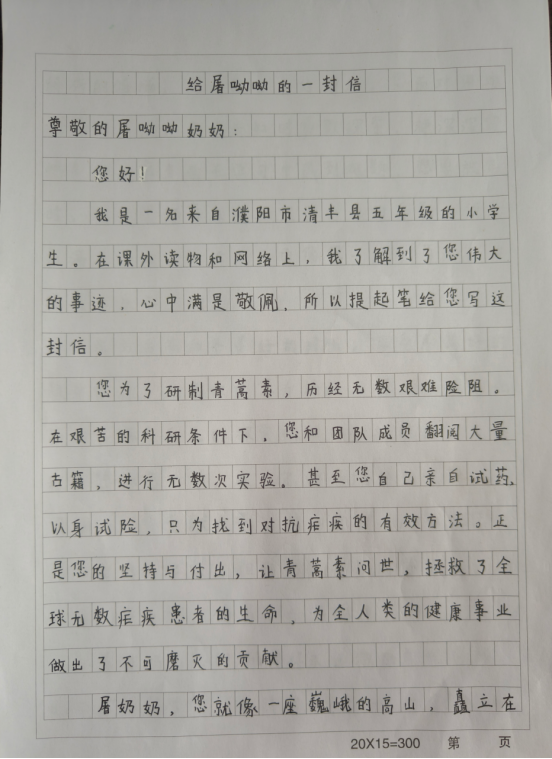 给屠呦呦的一封信
尊敬的屠呦呦奶奶：
您好！
我是一名来自濮阳市清丰县五年级的小学
生。在课外读物和网络上，我了解到了您伟大
的事迹，心中满是敬佩，所以提起笔给您写这
封信。
您为了研制青蒿素，历经无数艰难险阻。
在艰苦的科研条件下，您和团队成员翻阅大量
古籍，进行无数次实验。甚至您自己亲自试药，
以身试险，只为找到对抗疟疾的有效方法。正
是您的坚持与付出，让青蒿素问世，拯救了全
球无数疟疾患者的生命，为全人类的健康事业
做出了不可磨灭的贡献。
屠奶奶，您就像一座巍峨的高山，矗立在
20X15=300 第 页